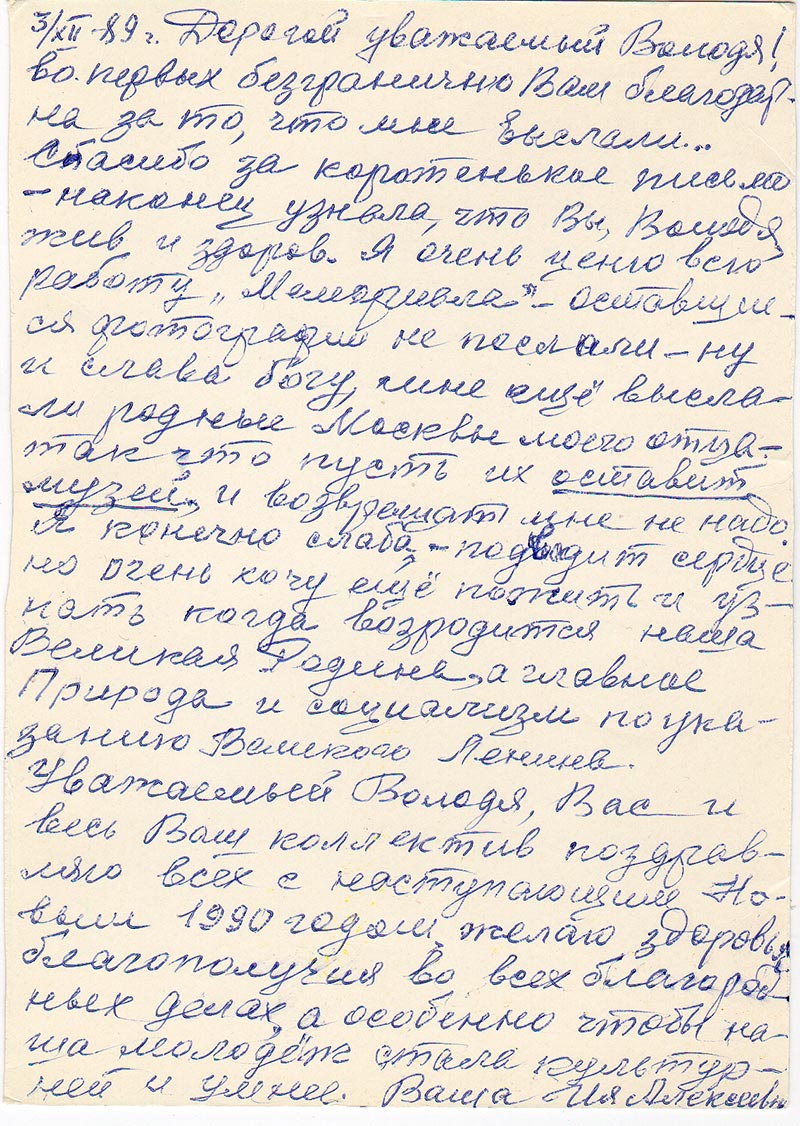 3/XII-89 г. Дорогой уважаемый Володя!
во-первых безгранично Вам благодар-
на за то, что мне выслали...
Спасибо за коротенькое письмо
- наконец узнала, что Вы, Володя,
жив и здоров. Я очень ценю всю
работу „Мемориала" - оставшие-
ся фотографии не послали - ну
и слава богу, мне ещё высла-
ли родные Москвы моего отца -
так что пусть их оставит
музей, и возвращать мне не надо.
Я конечно слаба, - подводит сердце
но очень хочу ещё пожить и уз-
нать когда возродится наша
Великая Родина, а главное
Природа и социализм по ука-
занию Великого Ленина.
Уважаемый Володя, Вас и
весь Ваш коллектив поздрав-
ляю всех с наступающим Но-
вым 1990 годом, желаю здоровья,
благополучия во всех благород-
ных делах, а особенно чтобы на-
ша молодёж стала культур-
ней и умнее. Ваша Ия Алексеевн